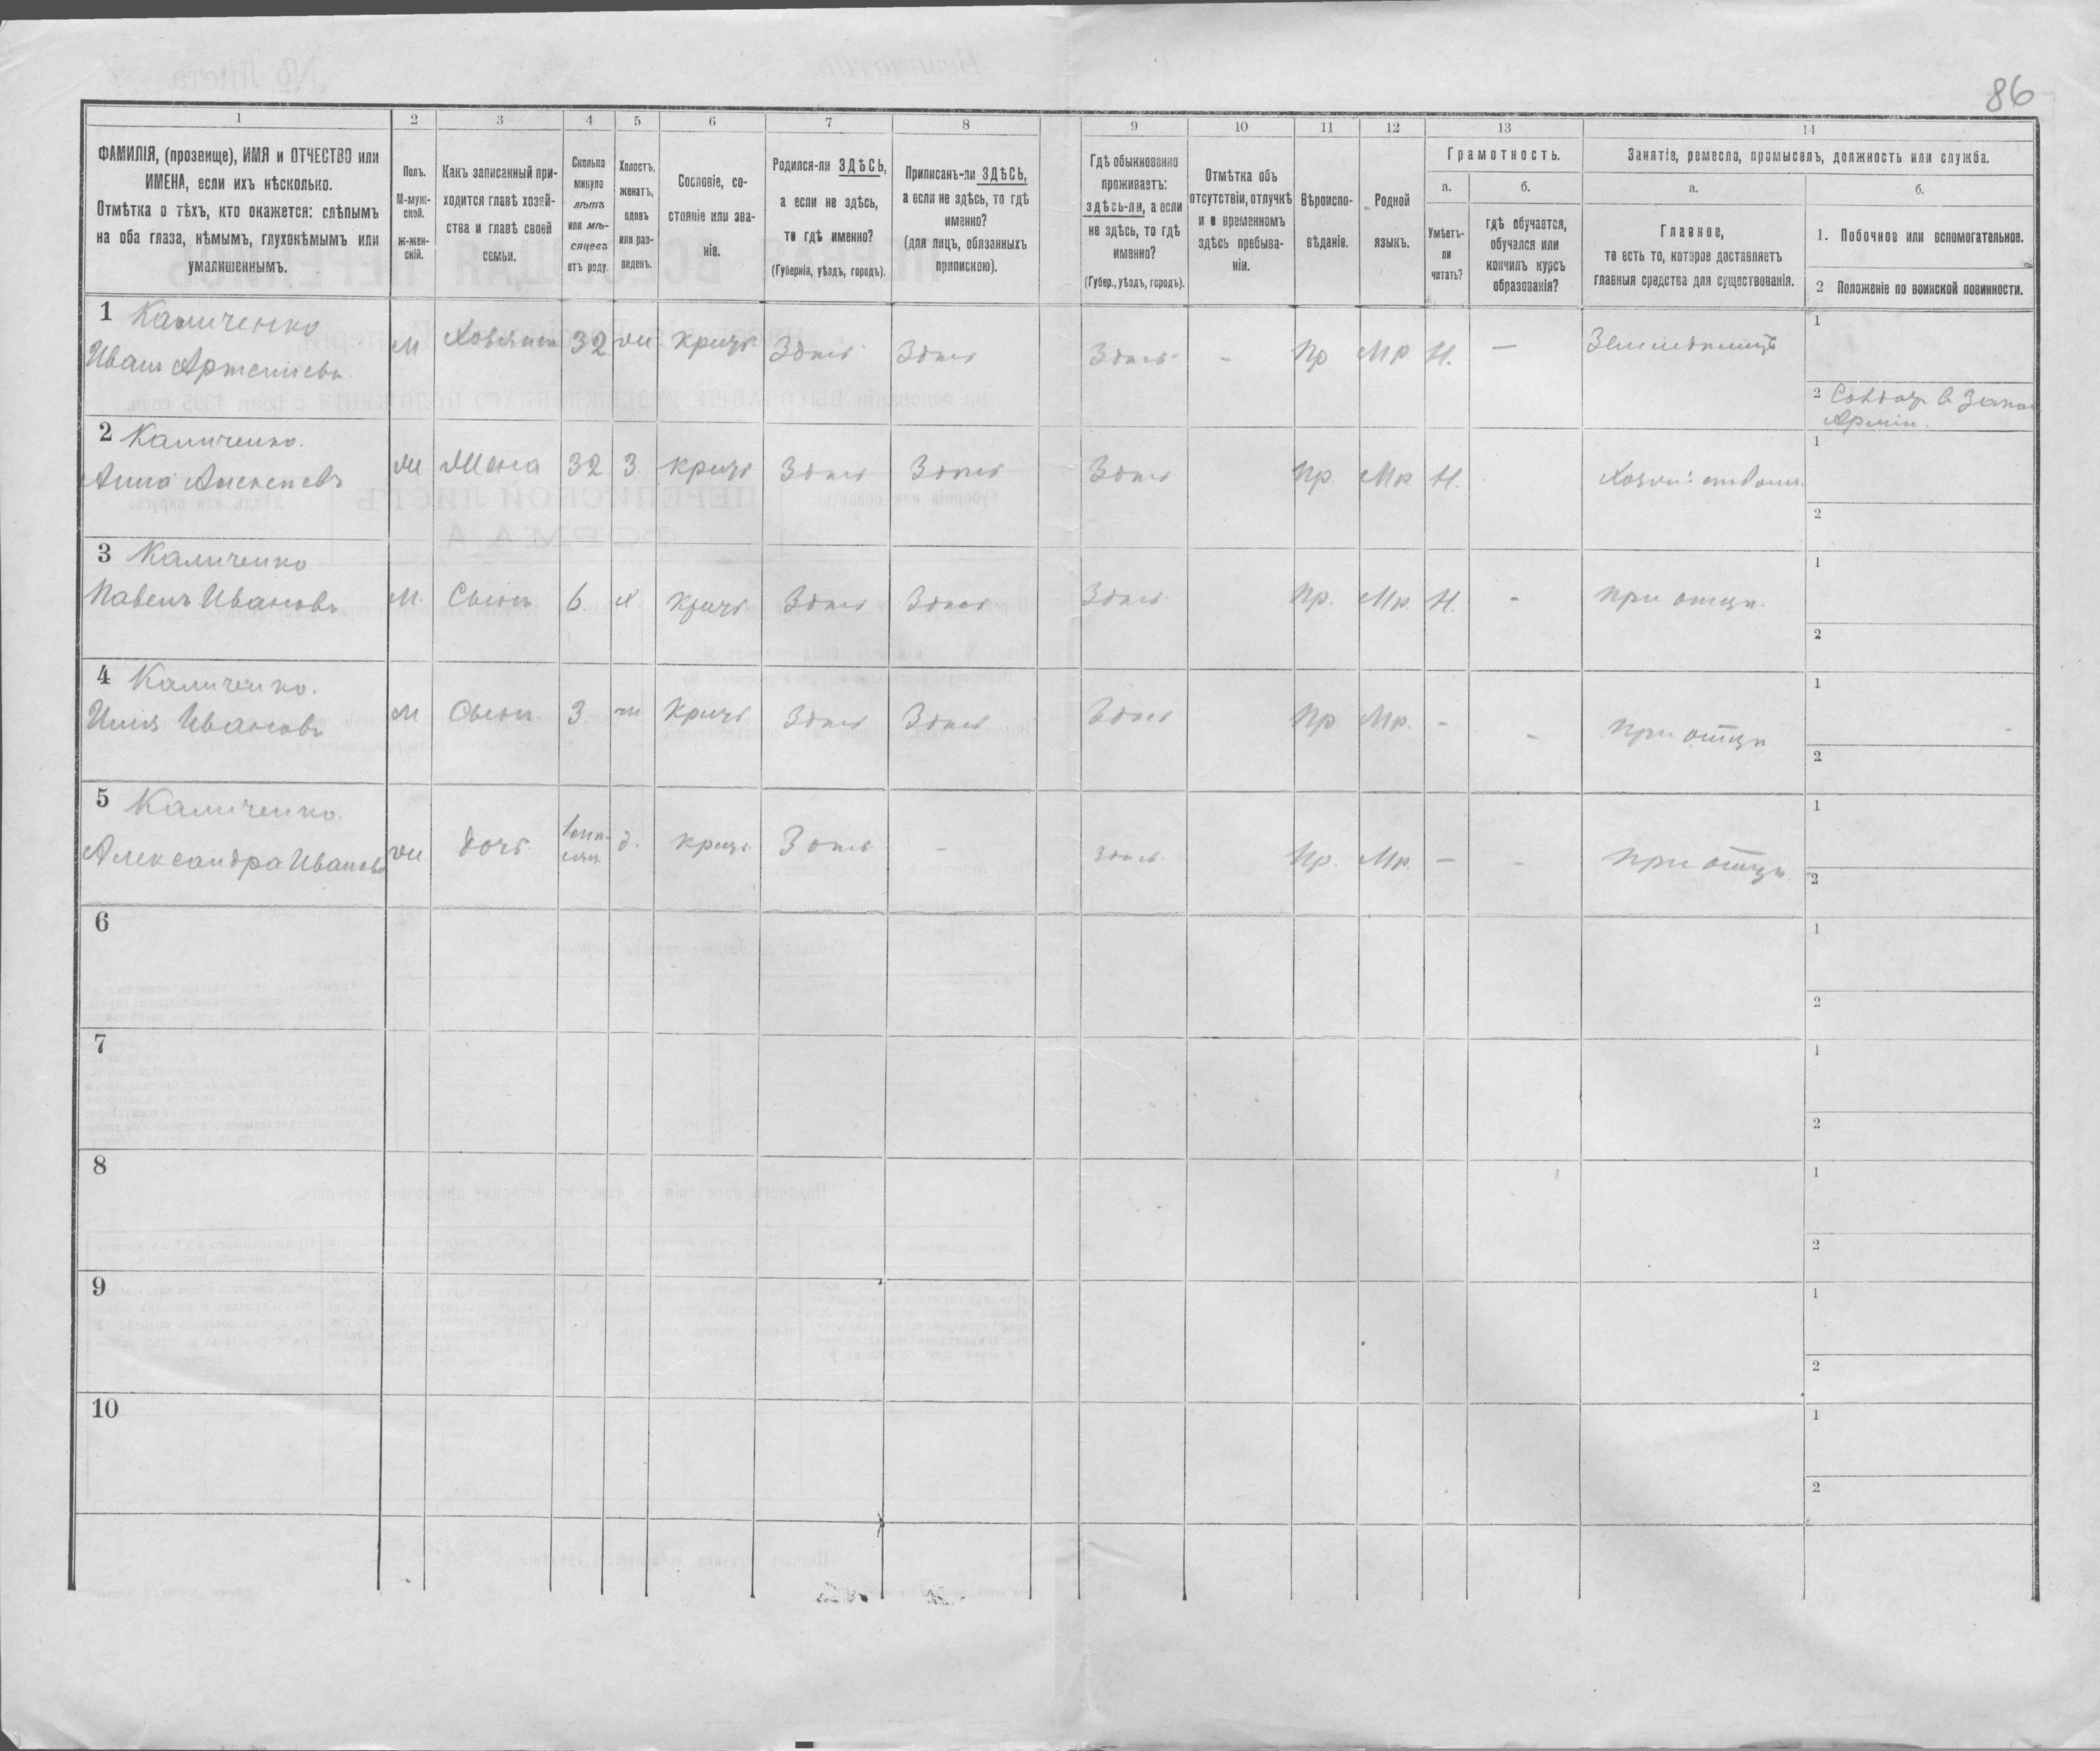 86
1 2 3 4 5 6 7 8 9 10 11 12 13 14
ФАМИЛІЯ, (прозвище), ИМЯ и ОТЧЕСТВО или
ИМЕНА, если ихъ нѣсколько.
Отмѣтка о тѣхъ, кто окажется: слѣпымъ
на оба глаза, нѣмымъ, глухонѣмымъ или
умалишеннымъ.
Полъ.
М-муж-
ской.
ж-жен-
скій.
Какъ записанный при-
ходится главѣ хозяй-
ства и главѣ своей
семьи.
Сколько
минуло
лѣтъ
или мѣ-
сяцевъ
отъ роду.
Холостъ,
женатъ,
вдовъ
или раз-
веденъ.
Сословіе, со-
стояніе или зва-
ніе.
Родился-ли ЗДѢСЬ,
а если не здѣсь,
то гдѣ именно?
(Губернія, уѣздъ, городъ).
Приписанъ-ли ЗДѢСЬ,
а если не здѣсь, то гдѣ
именно?
(для лицъ, обязанныхъ
припискою).
Гдѣ обыкновенно
проживаетъ:
здѣсь-ли, а если
не здѣсь, то гдѣ
именно?
(Губер., уѣздъ, городъ).
Отмѣтка объ
отсутствіи, отлучкѣ
и о временномъ
здѣсь пребыва-
ніи.
Вѣроиспо-
вѣданіе.
Родной
языкъ.
Грамотность.
а.
Умѣетъ-
ли
читать?
б.
гдѣ обучается,
обучался или
кончилъ курсъ
образованія?
Занятіе, ремесло, промыселъ, должность или служба.
а.
Главное,
то есть то, которое доставляетъ
главныя средства для существованія.
б.
1. Побочное или вспомогательное.
2 Положеніе по воинской повинности.
1 Каличенко
Иванъ Артемьевъ
М Хозяинъ 32 ж Крист Здѣсь Здѣсь Здѣсь - Пр Мр Н. — Земледѣлецъ
1
2 Солдат в Запас
Арміи.
2 Каличенко.
Анна Алексѣевъ
ж Жена 32 З. Крист Здѣсь Здѣсь Здѣсь Пр. Мр Н.
1
2
3 Каличенко
Павелъ Ивановъ
М. Сынъ 6. х Крист Здѣсь Здѣсь Здѣсь Пр. Мр. Н. - при отцѣ.
1
2
4 Каличенко.
Илия Ивановъ
М Сынъ 3. Крист Здѣсь Здѣсь Здѣсь Пр. Мр. - - при отцѣ
1
2
5 Каличенко.
Александра Иванова
ж дочь д. Крист Здѣсь - Здѣсь Пр. Мр. — - при отцѣ.
1
2
6
1
2
7
1
2
8
1
2
9
1
2
10
1
2